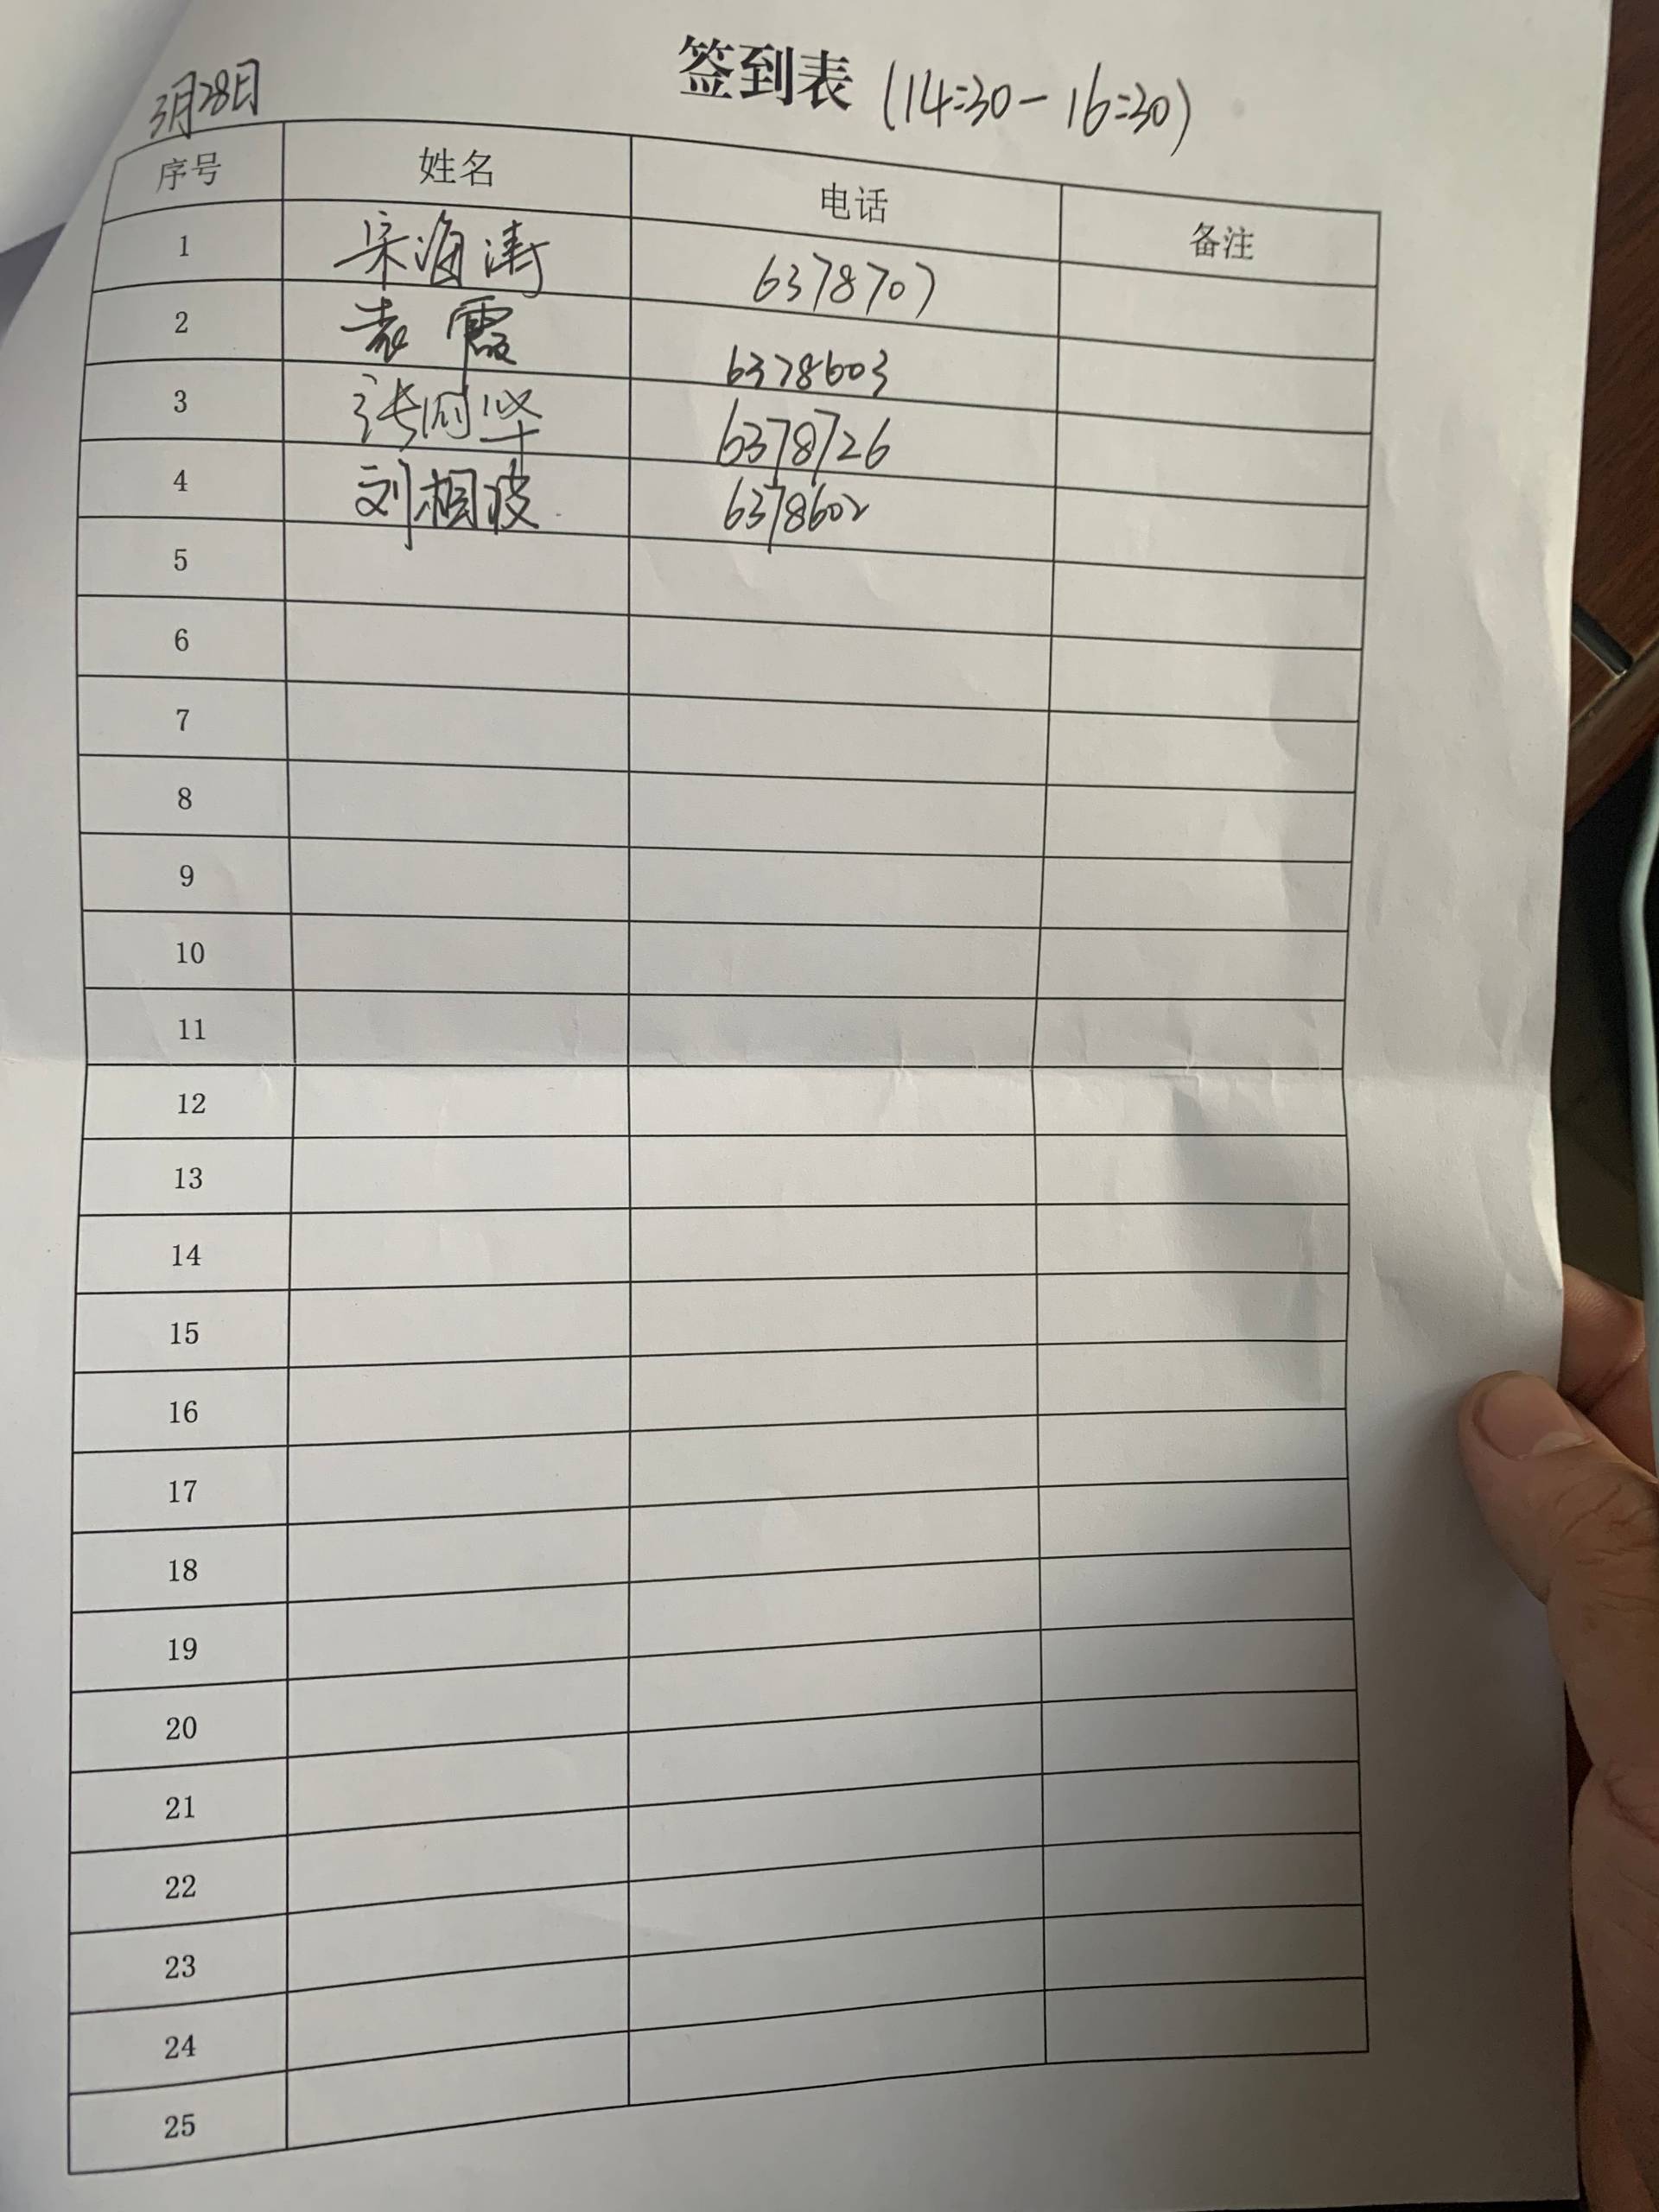 3月28日
签到表 (14:30-16:30)
序号 姓名 电话 备注
1 宋海涛 6378707
2 袁霞 6378603
3 张 6378726
4 刘相波 6378602
5
6
7
8
9
10
11
12
13
14
15
16
17
18
19
20
21
22
23
24
25